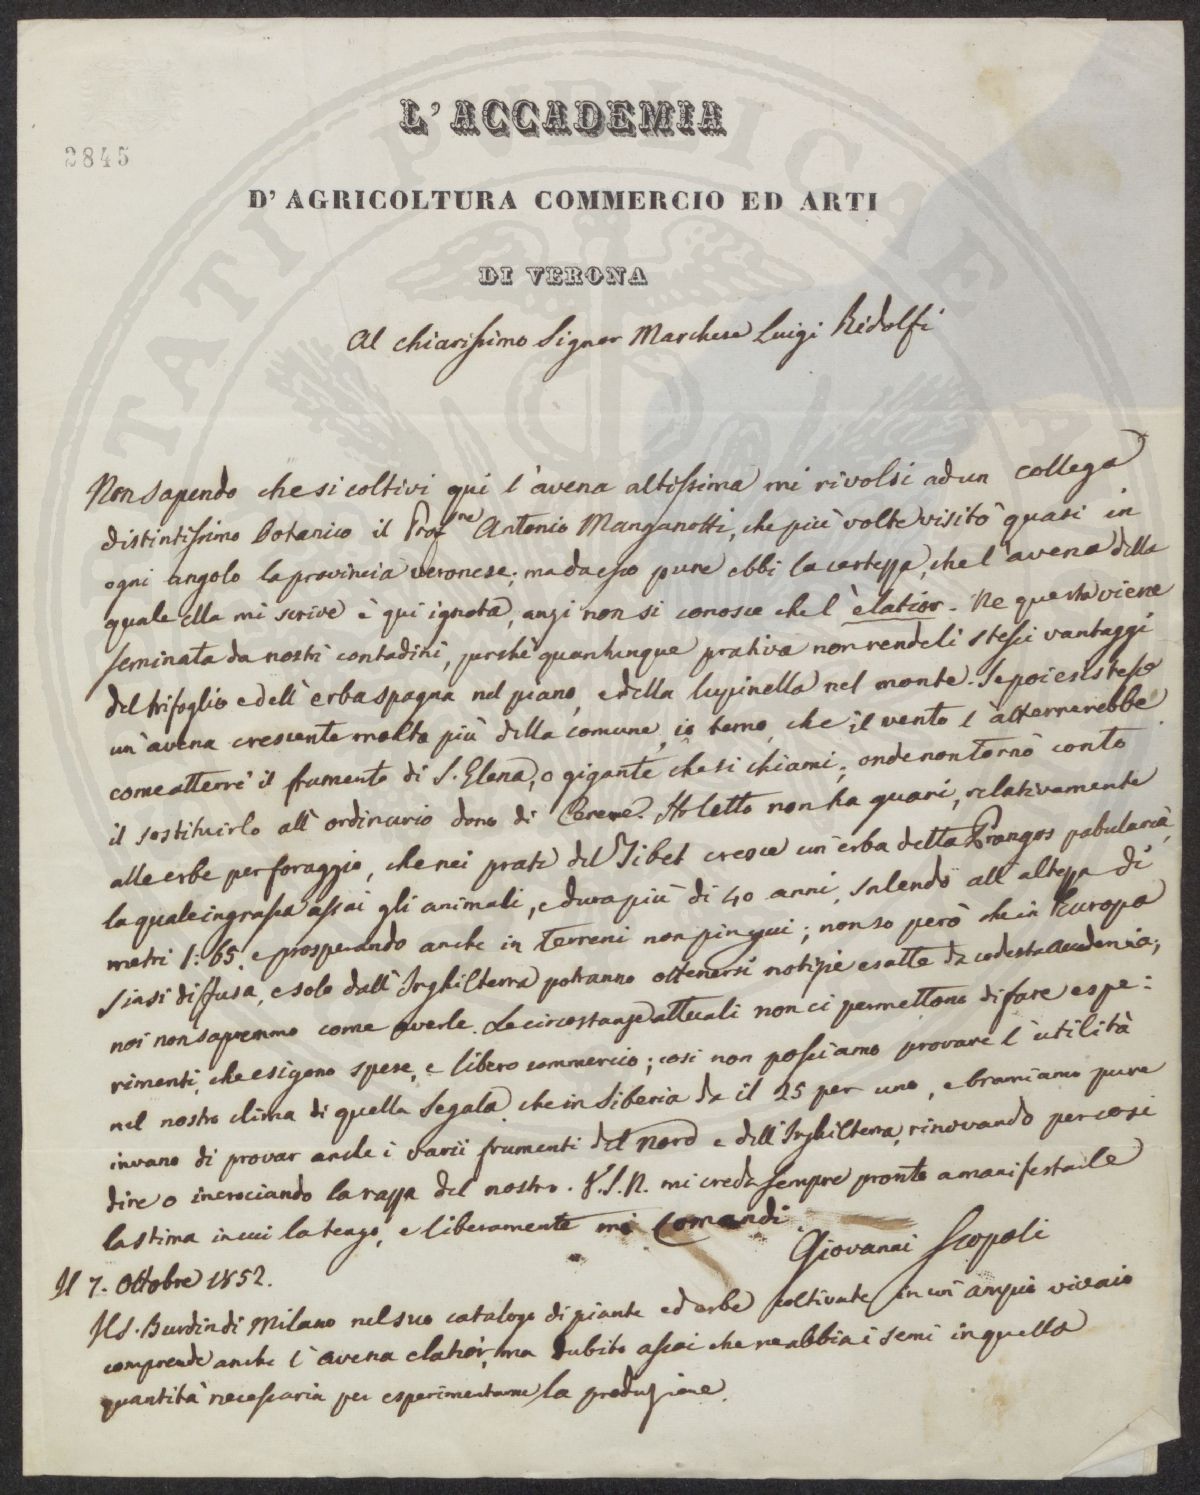 L'ACCADEMIA
2845
D'AGRICOLTURA COMMERCIO ED ARTI
DI VERONA
Al chiarissimo Signor Marchese Luigi Ridolfi
Non sapendo che si coltivi qui l'avena altissima mi rivolsi ad un collega
distintissimo Botanico il Prof.ne Antonio Manganotti, che più volte visitò quasi in
ogni angolo la provincia veronese; ma da esso pure ebbi la certezza, che l'avena della
quale ella mi scrive è qui ignota, anzi non si conosce che l'èlatior. Ne questa viene
seminata da nostri contadini, perchè quantunque prativa non rende li stessi vantaggi
del trifoglio e dell'erba spagna nel piano, e della lupinella nel monte. Se poi esistesse
un'avena crescente molto più della comune, io temo, che il vento l'atterrerebbe
come atterrì il frumento di S. Elena, o gigante che si chiami; onde non tornò conto
il sostituirlo all'ordinario dono di Cerere. Ho letto non ha guari, relativamente
alle erbe per foraggio, che nei prati del Tibet cresce un'erba detta Prangos pabularia,
la quale ingrassa assai gli animali, e dura più di 40 anni, salendo all'altezza di
metri 1:65. e prosperando anche in terreni non pingui; non so però che in Europa
siasi diffusa, e solo dall'Inghilterra potranno ottenersi notizie esatte da codesta accademia;
noi non sapremmo come averle. Le circostanze attuali non ci permettono di fare espe:
rimenti, che esigono spese, e libero commercio; così non possiamo provare l'utilità
nel nostro clima di quella Segala che in Siberia da il 25 per uno, e bramiamo pure
invano di provar anche i varii frumenti del nord e dell'Inghilterra, rinovando per così
dire o incrociando la razza del nostro. V.S.N. mi creda sempre pronto a manifestarle
la stima in cui la tengo, e liberamente mi Comandi.
Giovanni Scopoli
Il 7. Ottobre 1852.
Il S. Burdin di Milano nel suo catalogo di piante ed erbe coltivate in un ampio vivaio
comprende anche l'avena elatior, ma dubito assai che ne abbia i semi in quella
quantità necessaria per esperimentarne la produzione.